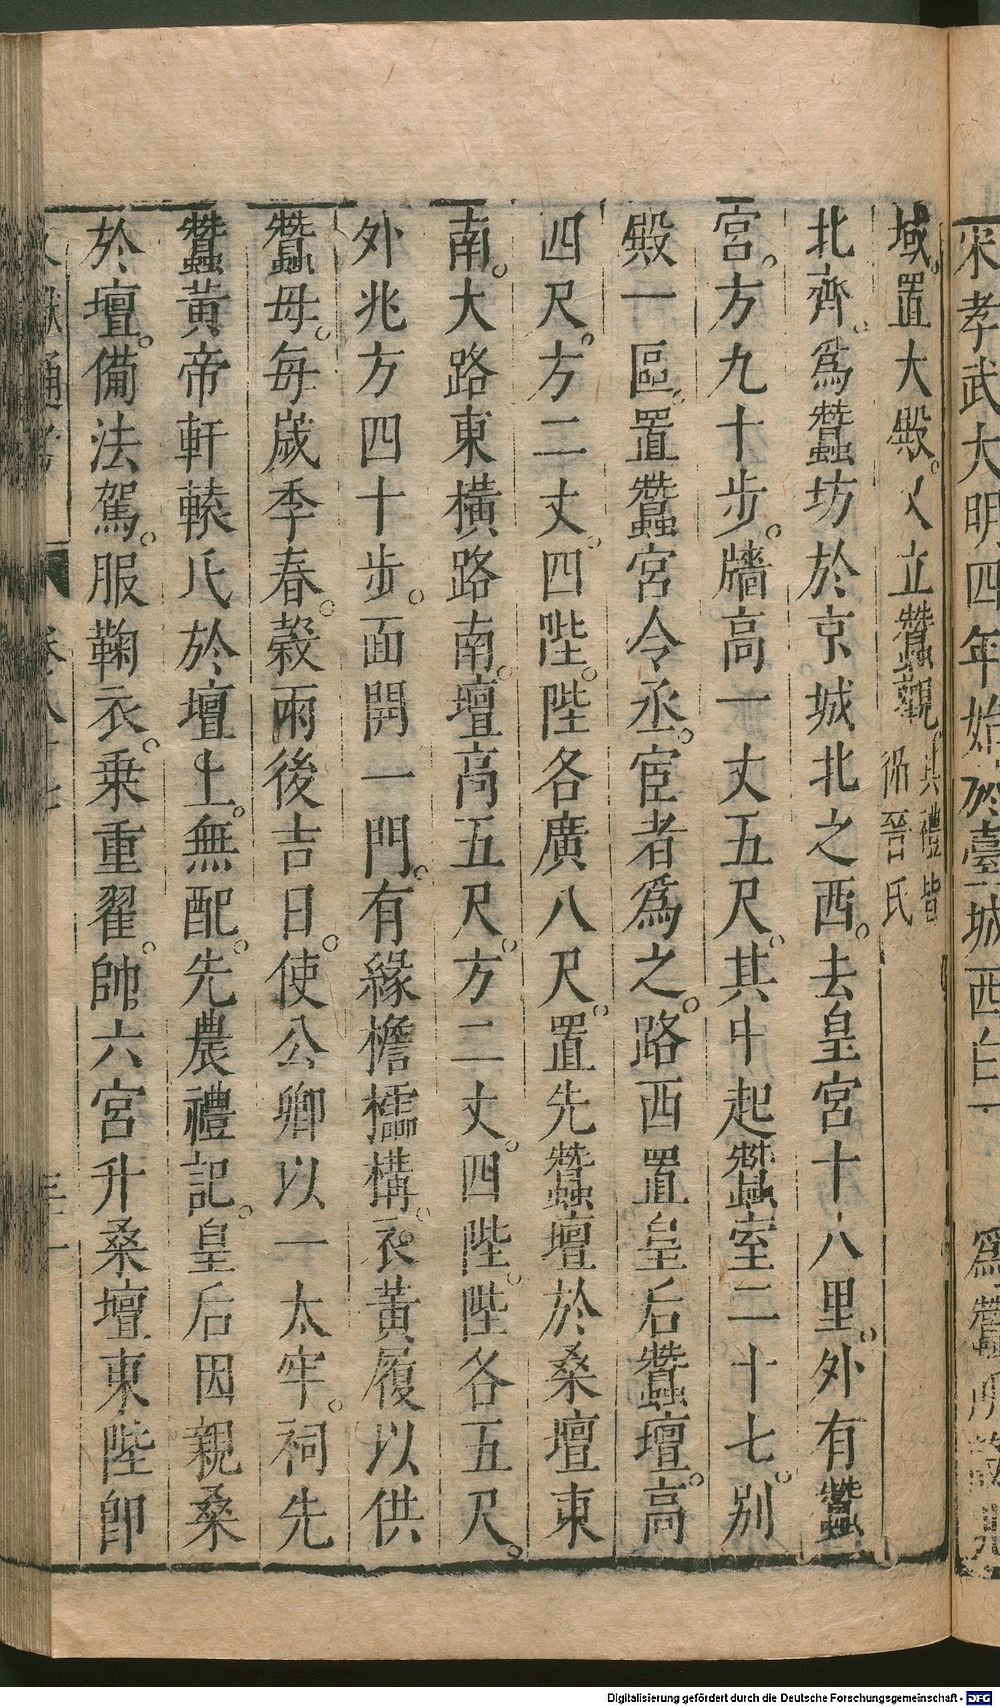 宋孝武大明四年始於臺城西白
爲蠶所
域。置大殿。又立蠶觀。其禮皆
循晉氏
北齊。爲蠶坊於京城北之西。去皇宮十八里。外有蠶
宮。方九十步。牆高一丈五尺。其中起蠶室二十七。別
殿一區。置蠶宮令丞。宦者爲之。路西置皇后蠶壇。高
四尺。方二丈。四陛。陛各廣八尺。置先蠶壇於桑壇東
南。大路東橫路南。壇高五尺。方二丈。四陛。陛各五尺。
外兆方四十步。面開一門。有緣襜襦褠。衣黃履以供
蠶母。每歲季春。穀雨後吉日。使公卿以一太牢。祠先
蠶黃帝軒轅氏於壇上。無配。先農禮記。皇后因親桑
於壇。備法駕。服鞠衣。乗重翟。帥六宮升桑壇東陛卽
獻通考
Digitalisierung gefördert durch die Deutsche Forschungsgemeinschaft - DFG